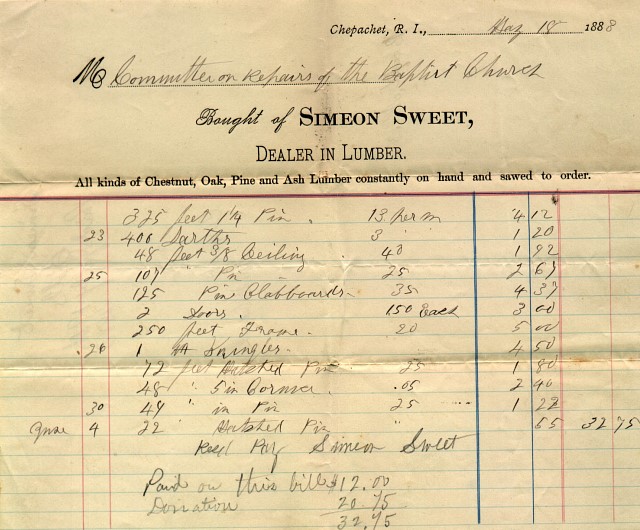 Chepachet, R. I., May 18 1888
Mr Committee on Repairs of the Baptist Church
Bought of SIMEON SWEET,
DEALER IN LUMBER.
All kinds of Chestnut, Oak, Pine and Ash Lumber constantly on hand and sawed to order.
325 feet 1¼ Pin . 13 per m 4 12
23 400 Larths 3 " " 1 20
48 feet 3/8 Ceiling . 40 1 92
25 107 " Pin 25 2 67
125 Pine Clabboards 35 4 37
2 Doors . 150 Each 3 00
250 feet Frame 20 5 00
26 1 M Shingles 4 50
72 feet Matched Pin 25 1 80
48 " 5 in Cornice .05 2 40
30 49 " in Pin 25 1 22
June 4 22 Matched Pin " 65 32 75
Recd Pay Simeon Sweet
Paid on this bill $12.00
Donation 20 75
32.75